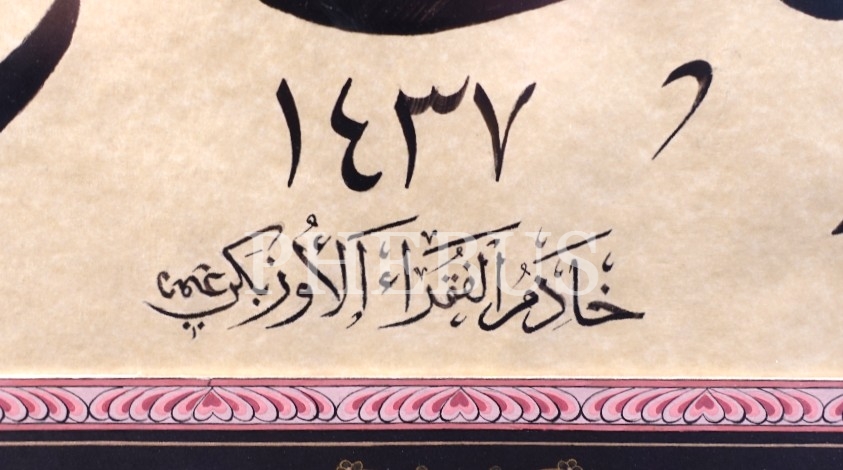 ١٤٣٧
خَادِمُ الفُقَرَاءِ الأُوزبَكي
PHEBUS